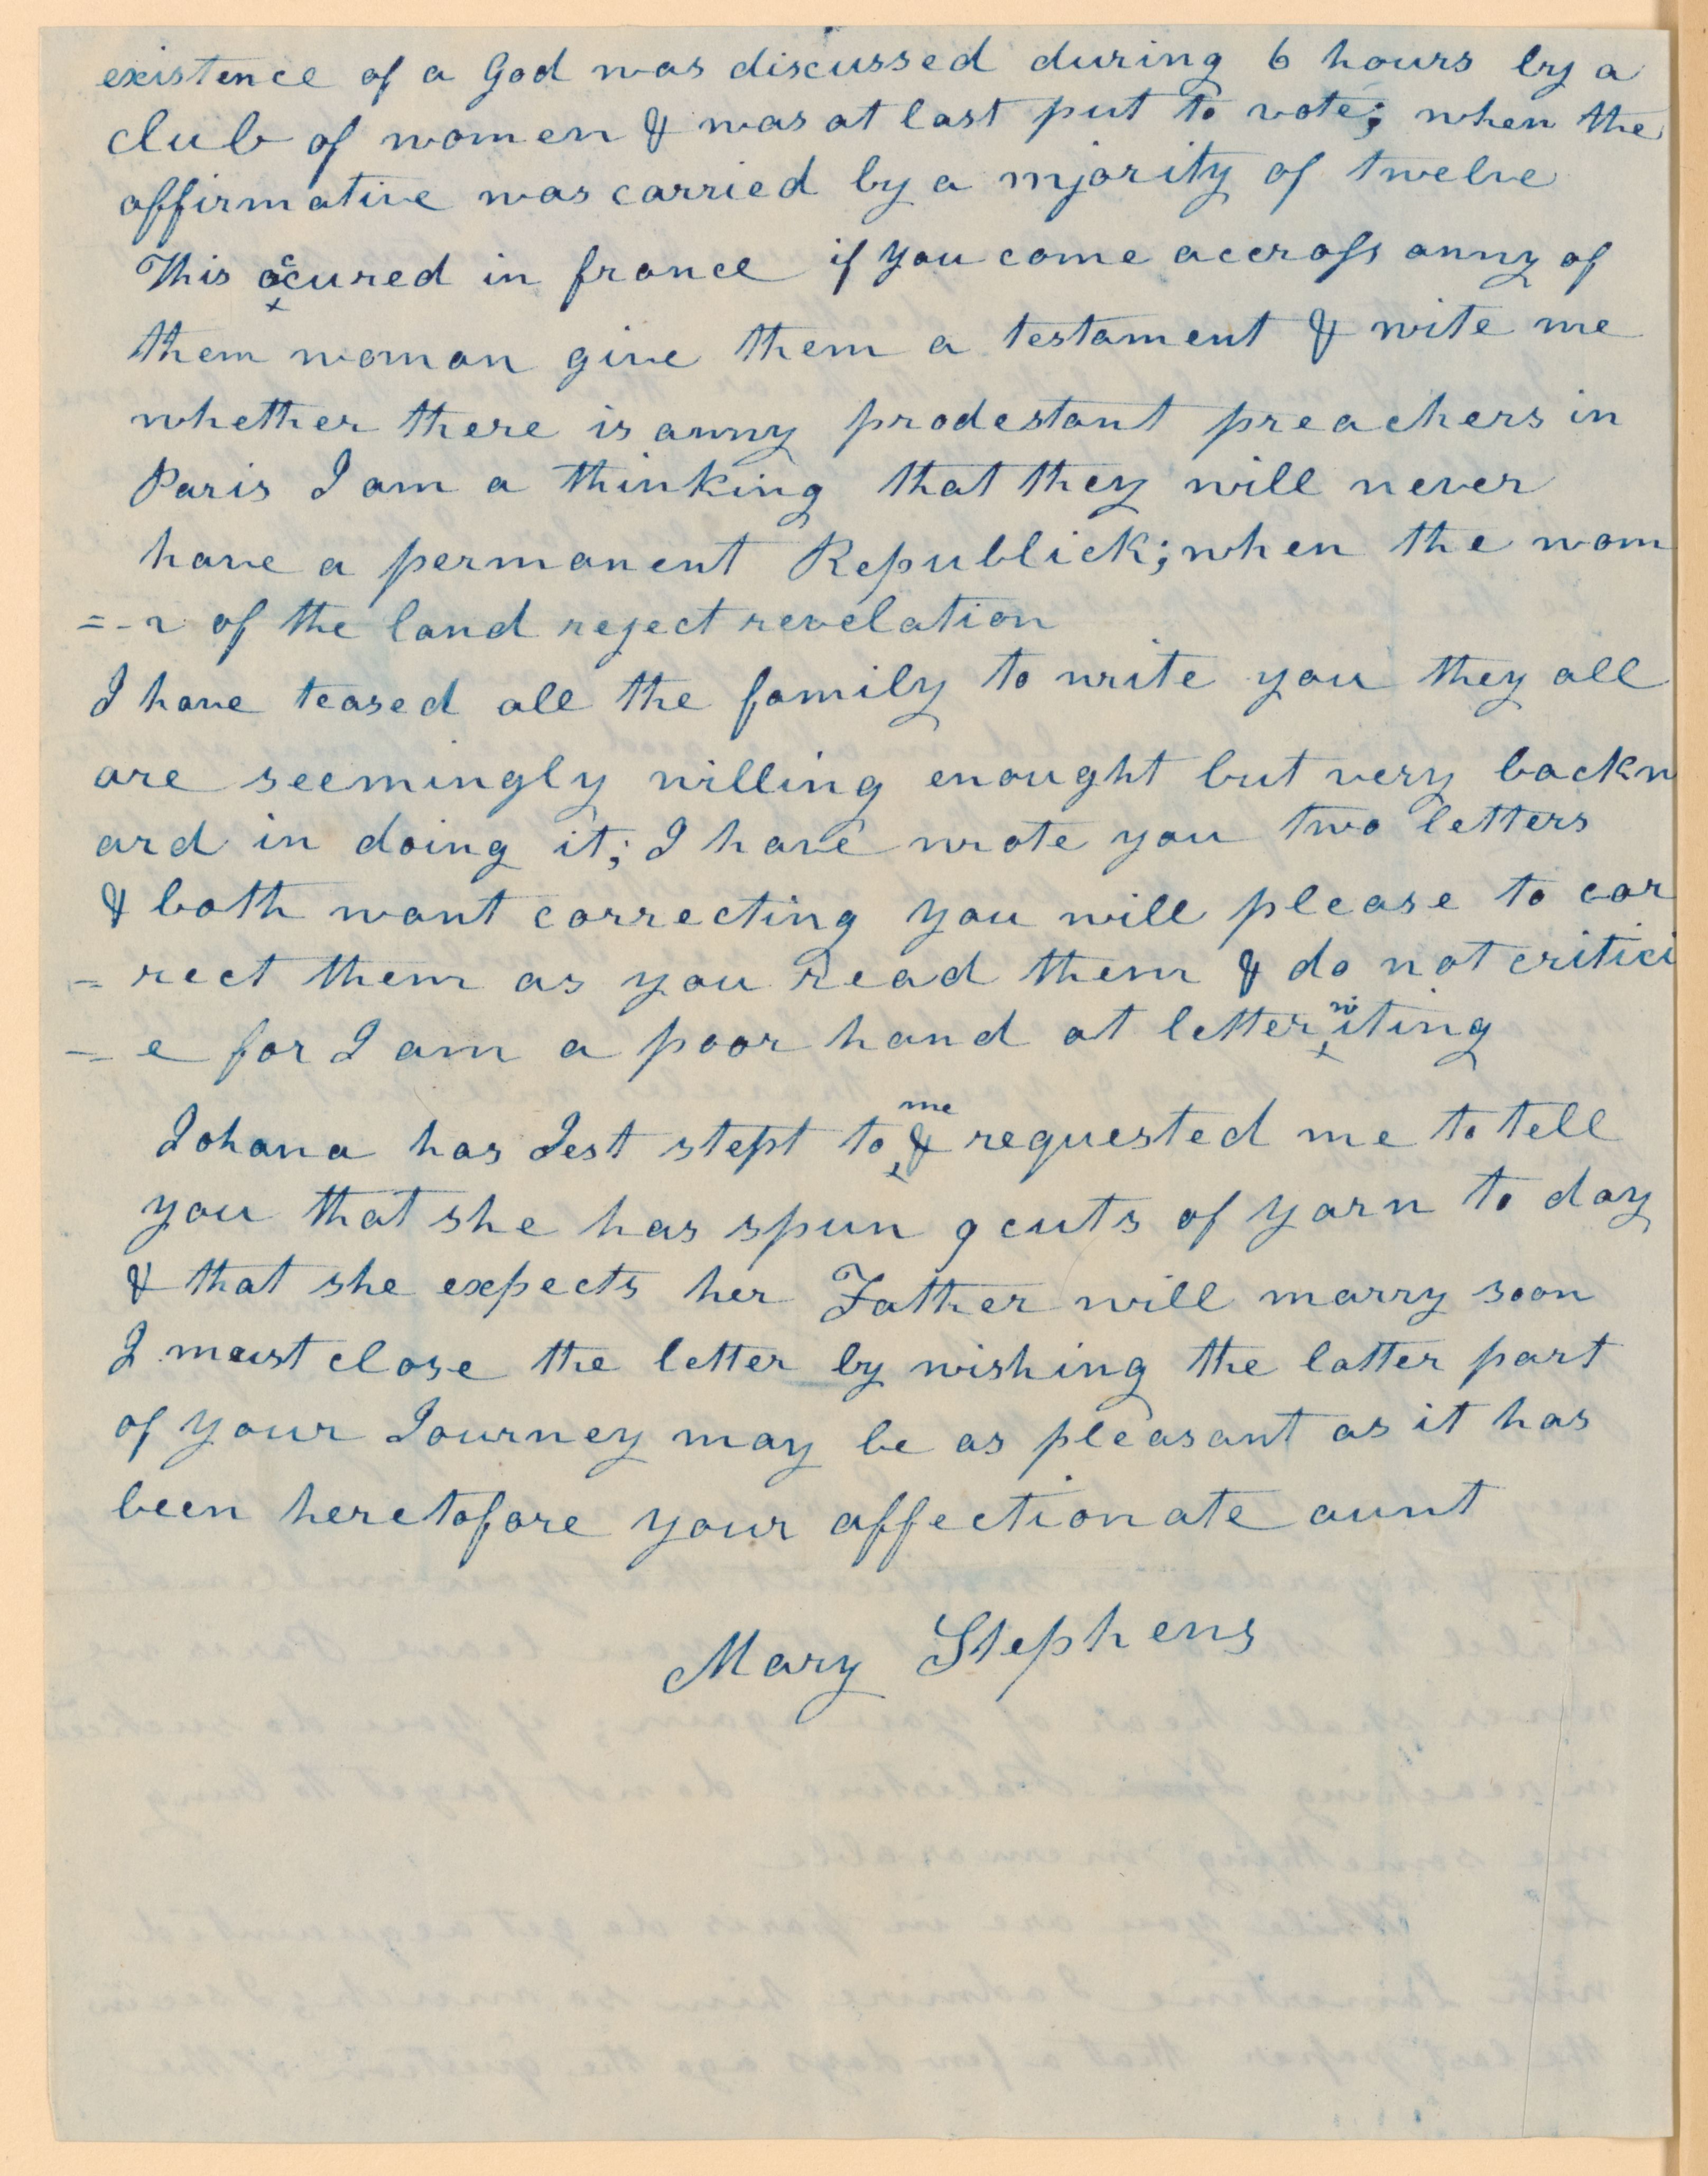 existence of a God was discussed during 6 hours by a
club of women & was at last put to vote; when the
affirmative was carried by a mjority of twelve
This occured in france if you come accross anny of
them woman give them a testament & wite me
whether there is anny prodestant preachers in
Paris I am a thinking that they will never
have a permanent Republick; when the wom
=-n of the land reject revelation
I have teased all the family to write you they all
are seemingly willing enought but very backw
ard in doing it; I have wrote you two letters
& both want correcting you will please to cor
= rect them as you read them & do not critici
= e for I am a poor hand at letter writing
Johana has Jest stept to me & requested me to tell
you that she has spun 9 cuts of yarn to day
& that she expects her Father will marry soon
I must close the letter by wishing the latter part
of your Journey may be as pleasant as it has
been heretofore your affectionate aunt
Mary Stephens